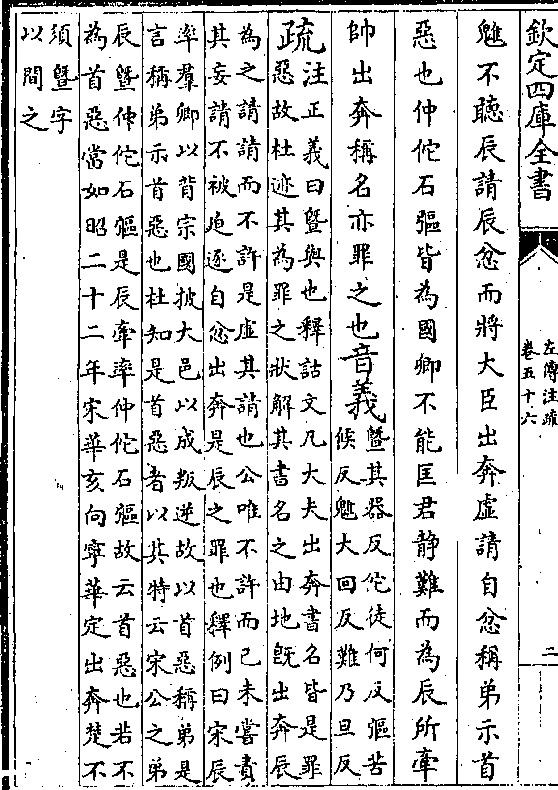 欽定四庫全書
左傳注疏
卷五十六
二
魋不聽辰請辰忿而將大臣出奔虛請自忿稱弟示首
惡也仲佗石彄皆為國卿不能匡君静難而為辰所牽
帥出奔稱名亦罪之也音義
暨其器反佗徒何反彄苦
候反魋大回反難乃旦反
疏
注正義曰暨與也釋詁文凡大夫出奔書名皆是罪
惡故杜迹其為罪之狀解其書名之由地既出奔辰
為之請請而不許是虛其請也公唯不許而已未嘗責
其妄請不被迫逐自忿出奔是辰之罪也釋例曰宋辰
率羣卿以背宗國披大邑以成叛逆故以首惡稱弟是
言稱弟示首惡也杜知是首惡者以其特云宋公之弟
辰暨仲佗石彄是辰牽率仲佗石彄故云首惡也若不
為首惡當如昭二十二年宋華亥向寧華定出奔楚不
須暨字
以間之